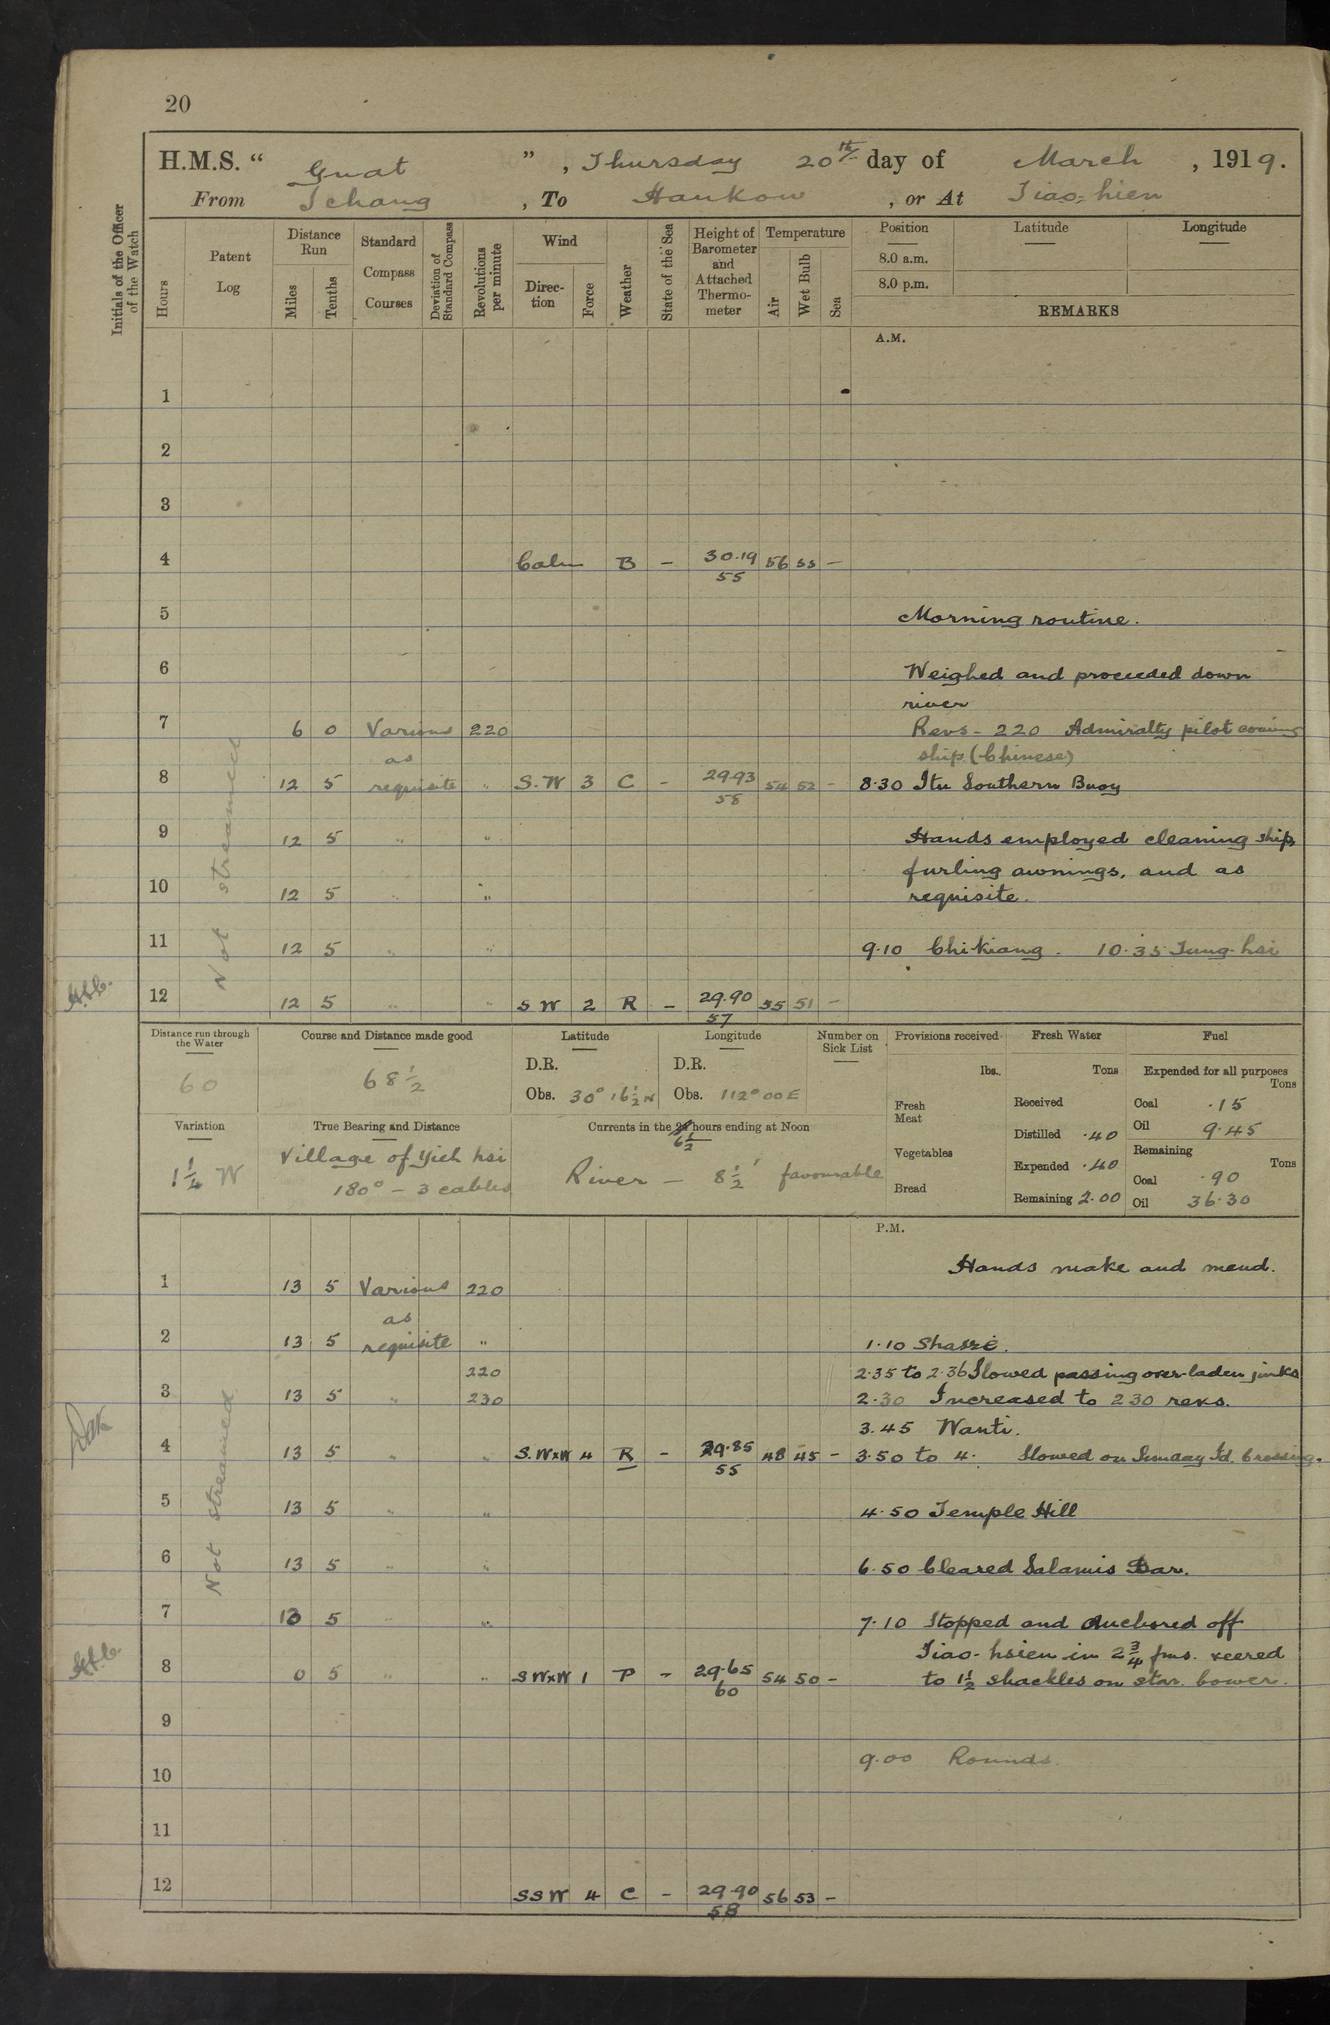 20
H.M.S. “ Gnat ” , Thursday 20th day of March , 1919.
From Ichang , To Hankow , or At Tiao-hien
Initials of the Officer of the Watch
Hours
Patent Log
Distance Run
Miles
Tenths
Standard Compass Courses
Deviation of Standard Compass
Revolutions per minute
Wind
Direction
Force
Weather
State of the Sea
Height of Barometer and Attached Thermometer
Temperature
Air
Wet Bulb
Sea
Position
8.0 a.m.
8.0 p.m.
Latitude
Longitude
REMARKS
A.M.
1
2
3
4 Calm B – 30.19 56 55 –
55
5 Morning routine.
6 Weighed and proceeded down
river
7 6 0 Various 220 Revs - 220 Admiralty pilot conning
as ship. (Chinese)
8 12 5 requisite " S.W 3 C - 29.93 54 52 - 8.30 Itu Southern Buoy
58
9 12 5 " " Hands employed cleaning ship,
furling awnings, and as
10 12 5 " " requisite.
11 12 5 " " 9.10 Chikiang. 10.35 Tung-hsi
12 12 5 " " S W 2 R – 29.90 55 51 –
57
Not streamed
Distance run through the Water
60
Course and Distance made good
68 1/2
Latitude
D.R.
Obs. 30° 16 1/2 N
Longitude
D.R.
Obs. 112° 00 E
Number on Sick List
Provisions received
lbs.
Fresh Meat
Vegetables
Bread
Fresh Water
Tons
Received
Distilled .40
Expended .40
Remaining 2.00
Fuel
Expended for all purposes
Tons
Coal .15
Oil 9.45
Remaining
Tons
Coal .90
Oil 36.30
Variation
1 1/4 W
True Bearing and Distance
Village of Yieh hsi
180° - 3 cables
Currents in the 24 hours ending at Noon
6 1/2
River – 8 1/2' favourable
P.M.
Hands make and mend.
1 13 5 Various 220
as
2 13 5 requisite " 1.10 Shasze.
220 2.35 to 2.36 Slowed passing over-laden junks
3 13 5 " 230 2.30 Increased to 230 revs.
3.45 Wanti.
4 13 5 " " S.WxW 4 R – 29.85 48 45 – 3.50 to 4. Slowed on Sunday Id. Crossing.
55
5 13 5 " " 4.50 Temple Hill
6 13 5 " " 6.50 Cleared Salamis Bar.
7 13 5 " " 7.10 Stopped and Anchored off
Tiao-hsien in 2 3/4 fms. veered
8 0 5 " " S WxW 1 P – 29.65 54 50 – to 1 1/2 shackles on star. bower.
60
9
9.00 Rounds.
10
11
12 SSW 4 C – 29.90 56 53 –
58
Not streamed